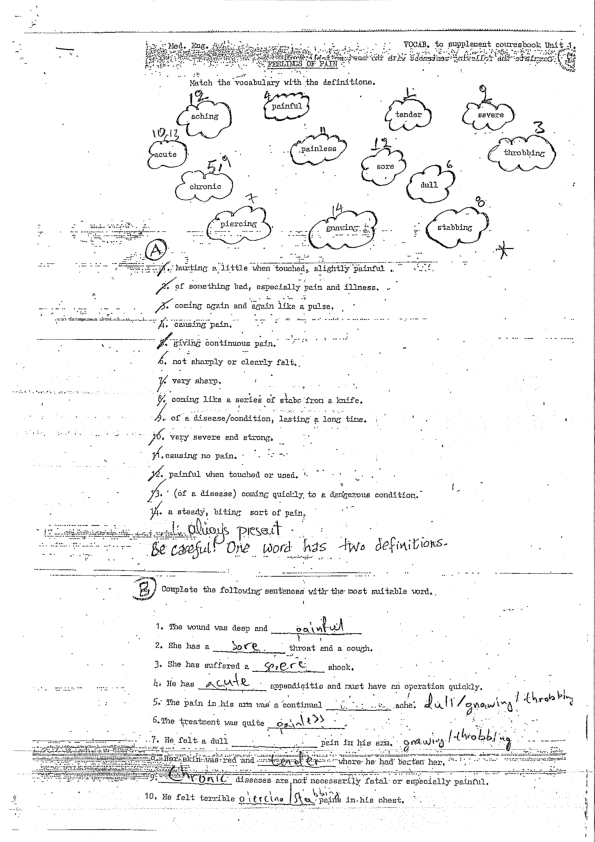 Med. Eng. VOCAB. to supplement coursebook Unit 1.
FEELINGS OF PAIN
Match the vocabulary with the definitions.
12 4 1 2
aching painful tender severe
10,13 11 12 3
acute painless sore throbbing
5,9 6
chronic dull
7 14 8
piercing gnawing stabbing
A
1. hurting a little when touched, slightly painful.
2. of something bad, especially pain and illness.
3. coming again and again like a pulse.
4. causing pain.
5. giving continuous pain.
6. not sharply or clearly felt.
7. very sharp.
8. coming like a series of stabs from a knife.
9. of a disease/condition, lasting a long time.
10. very severe and strong.
11. causing no pain.
12. painful when touched or used.
13. (of a disease) coming quickly to a dangerous condition.
14. a steady, biting sort of pain.
always present
Be careful! One word has two definitions.
B Complete the following sentences with the most suitable word.
1. The wound was deep and painful
2. She has a sore throat and a cough.
3. She has suffered a severe shock.
4. He has acute appendicitis and must have an operation quickly.
5. The pain in his arm was a continual ache. dull/gnawing/throbbing
6. The treatment was quite painless
7. He felt a dull pain in his arm. gnawing/throbbing
8. Her skin was red and tender where he had beaten her.
9. Chronic diseases are not necessarily fatal or especially painful.
10. He felt terrible piercing/stabbing pains in his chest.